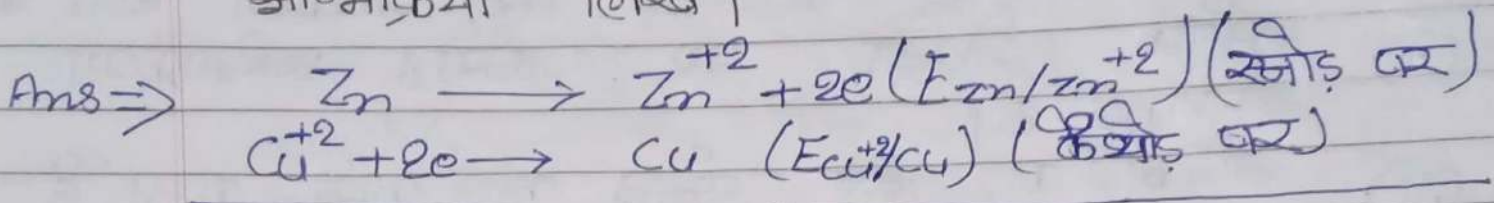 लिखो।
Ans⇒ Zn → Zn⁺² + 2e (E Zn/Zn⁺²) (एनोड़ पर)
Cu⁺² + 2e → Cu (E Cu⁺²/Cu) (कैथोड़ पर)